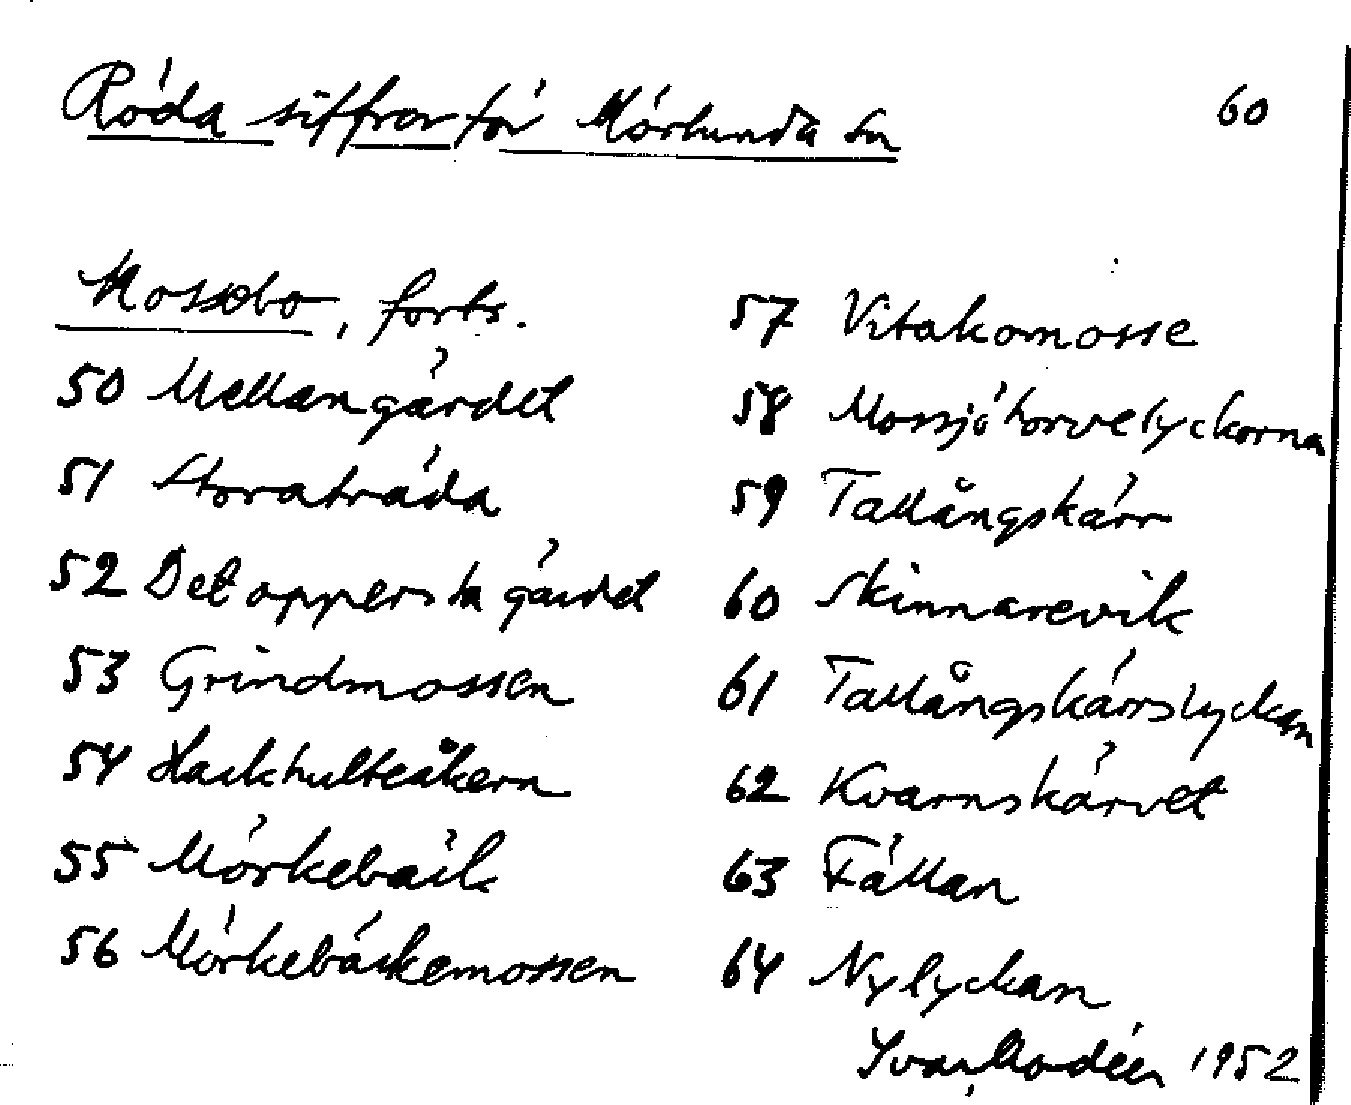 Röda siffror för Mörlunda sn
60
Mossebo, forts.
50 Mellangärdet
51 Storaträda
52 Det opperska gärdet
53 Grindmossen
54 Hackhulteåkern
55 Mörkebäck
56 Mörkebäckemossen
57 Vitakomosse
58 Mossjötorvelyckorna
59 Tallångskärr
60 Skinnarevik
61 Tallångskärrslyckan
62 Kvarnskärvet
63 Fällan
64 Nylyckan
Ivar Modéer 1952